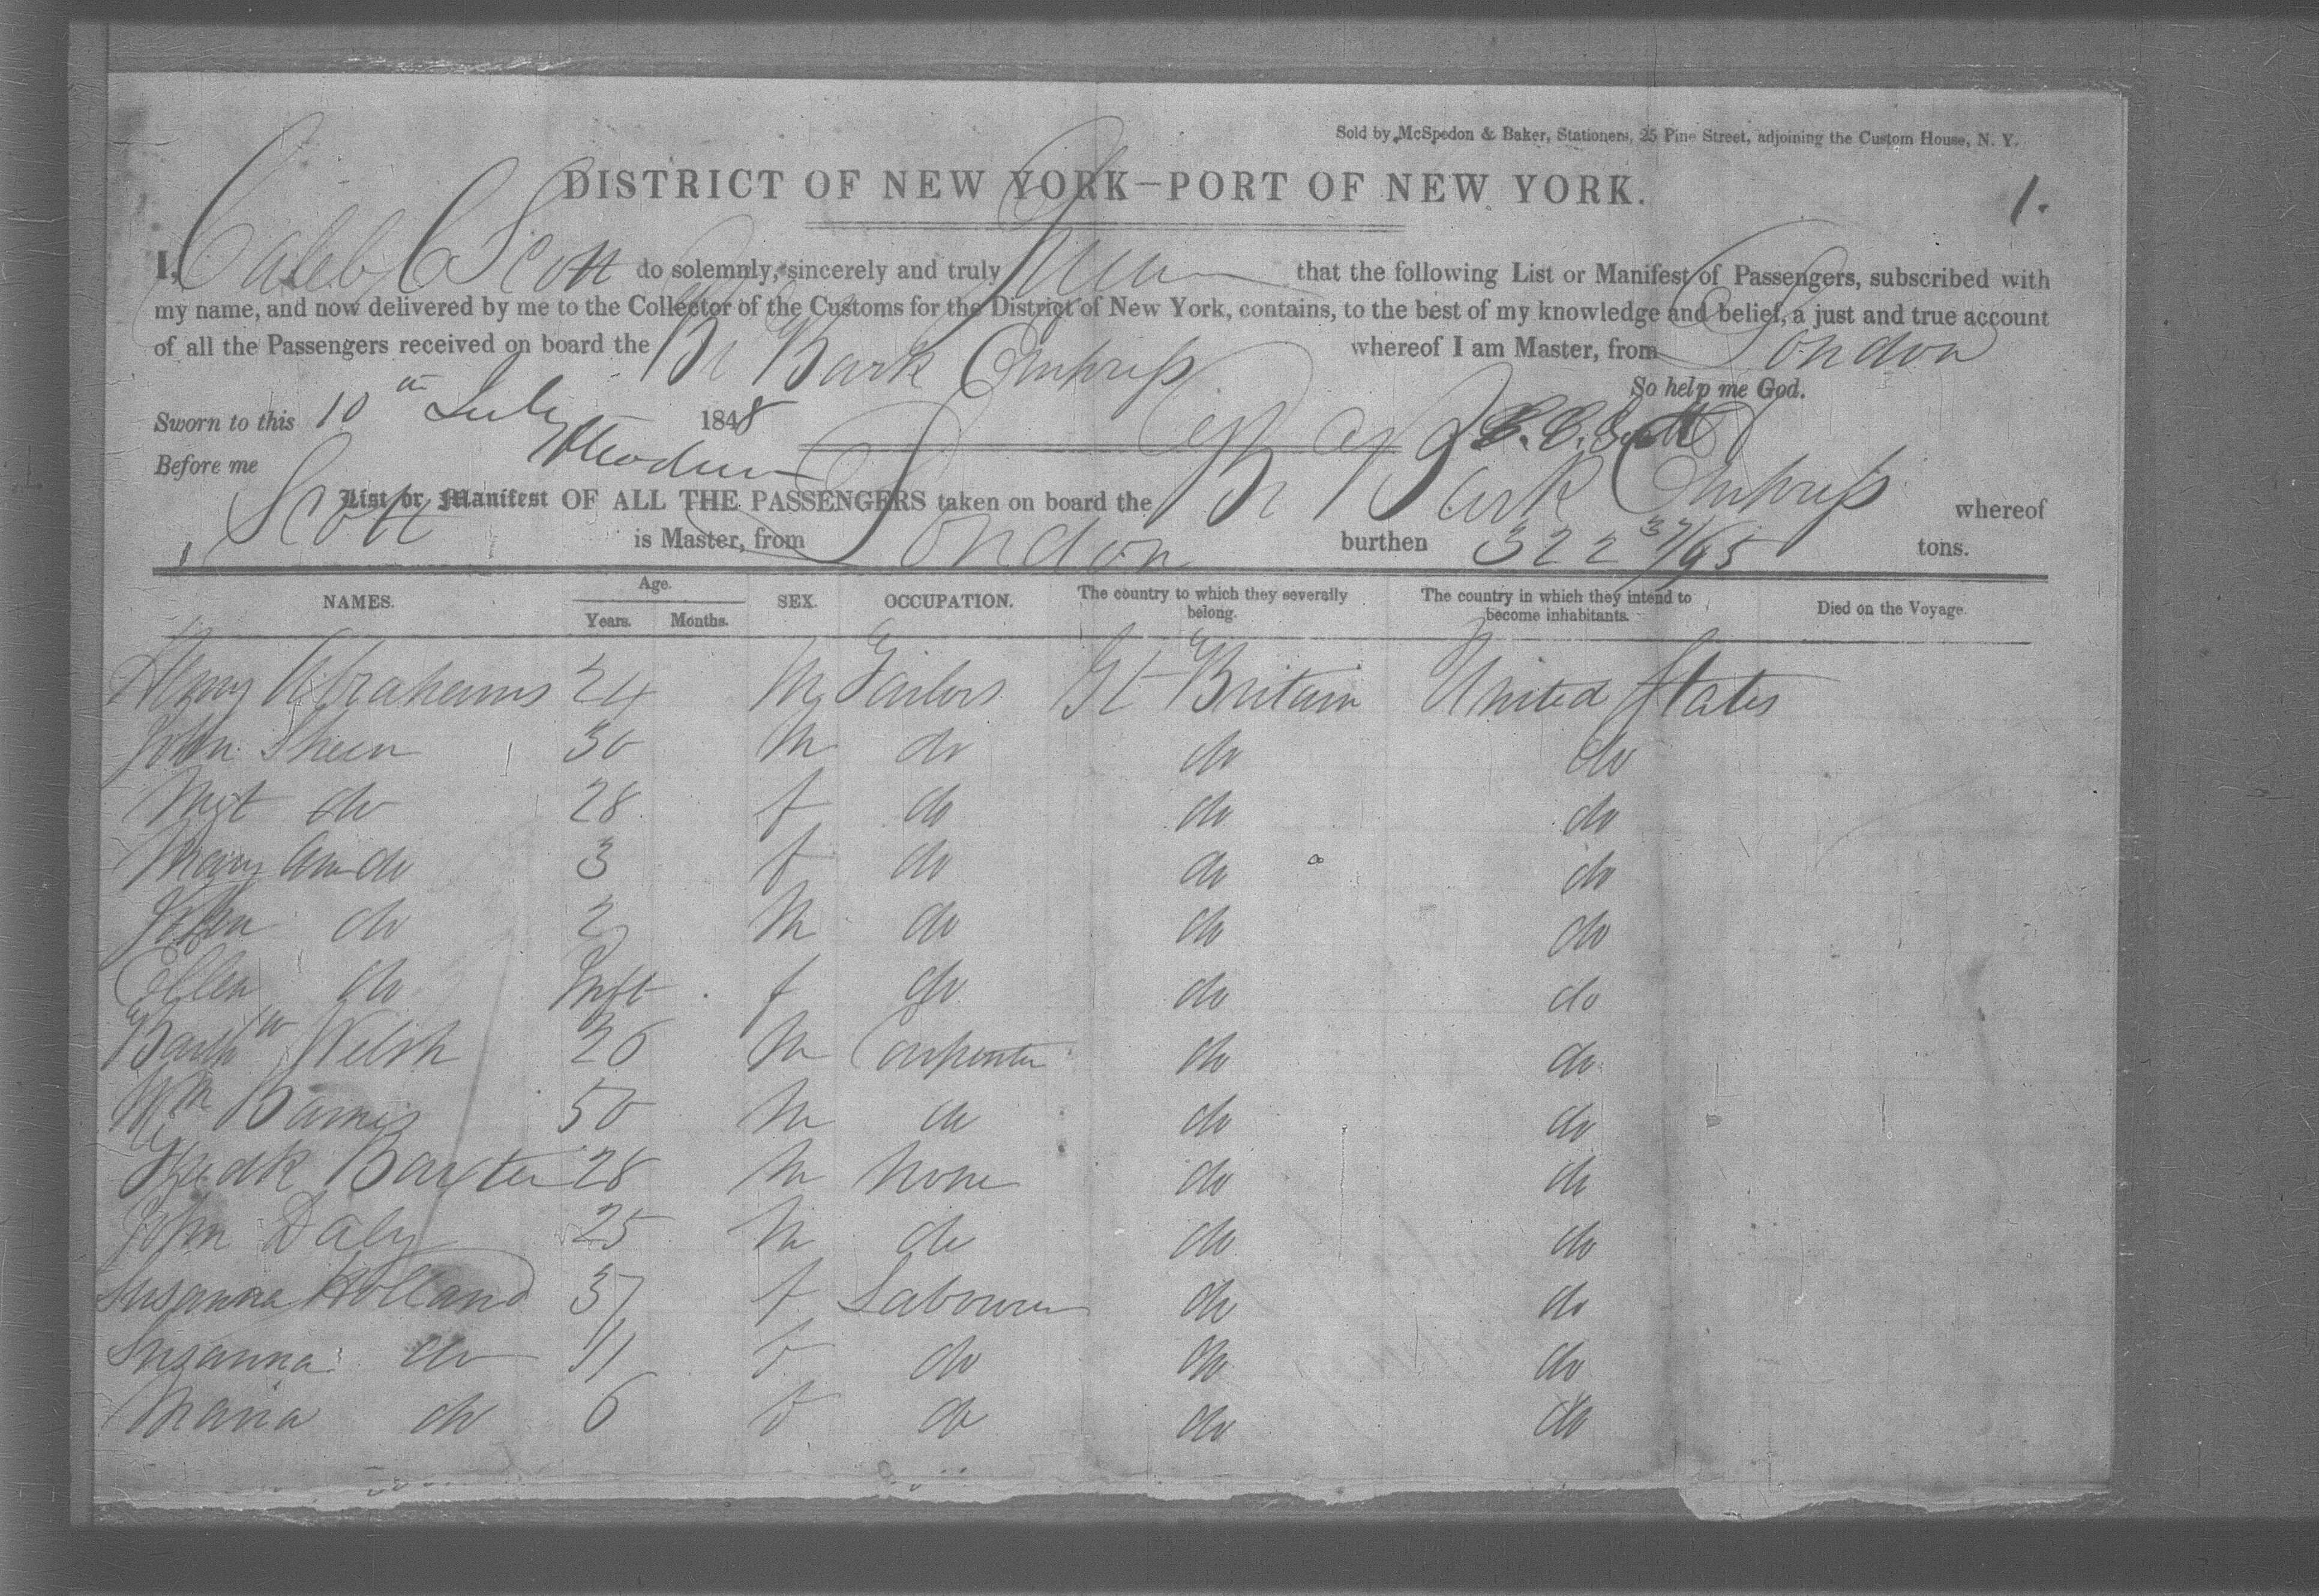 Sold by McSpedon & Baker, Stationers, 25 Pine Street, adjoining the Custom House, N. Y.
DISTRICT OF NEW YORK—PORT OF NEW YORK.
1.
I, Caleb C Scott do solemnly, sincerely and truly Swear that the following List or Manifest of Passengers, subscribed with
my name, and now delivered by me to the Collector of the Customs for the District of New York, contains, to the best of my knowledge and belief, a just and true account
of all the Passengers received on board the Br Bark Empress whereof I am Master, from London
So help me God.
Sworn to this 10th July 1848 C. C. Scott
Before me
List or Manifest OF ALL THE PASSENGERS taken on board the Br Bark Empress whereof
Scott is Master, from London burthen 322 37/95 tons.
NAMES. Age. Years. Months. SEX. OCCUPATION. The country to which they severally belong. The country in which they intend to become inhabitants. Died on the Voyage.
Henry Abrahams 24 M Tailors Gt Britain United States
John Sheen 30 M do do do
Mgt do 28 f do do do
Mary Ann do 3 f do do do
John do 2 M do do do
Ellen do Inft f do do do
Barthw Welsh 26 M Carpenter do do
Wm Barnes 50 M do do do
Fredk Baxter 28 M None do do
John Daly 25 M do do do
Susanna Holland 37 f Labourer do do
Susanna do 11 do do do
Maria do 6 do do do